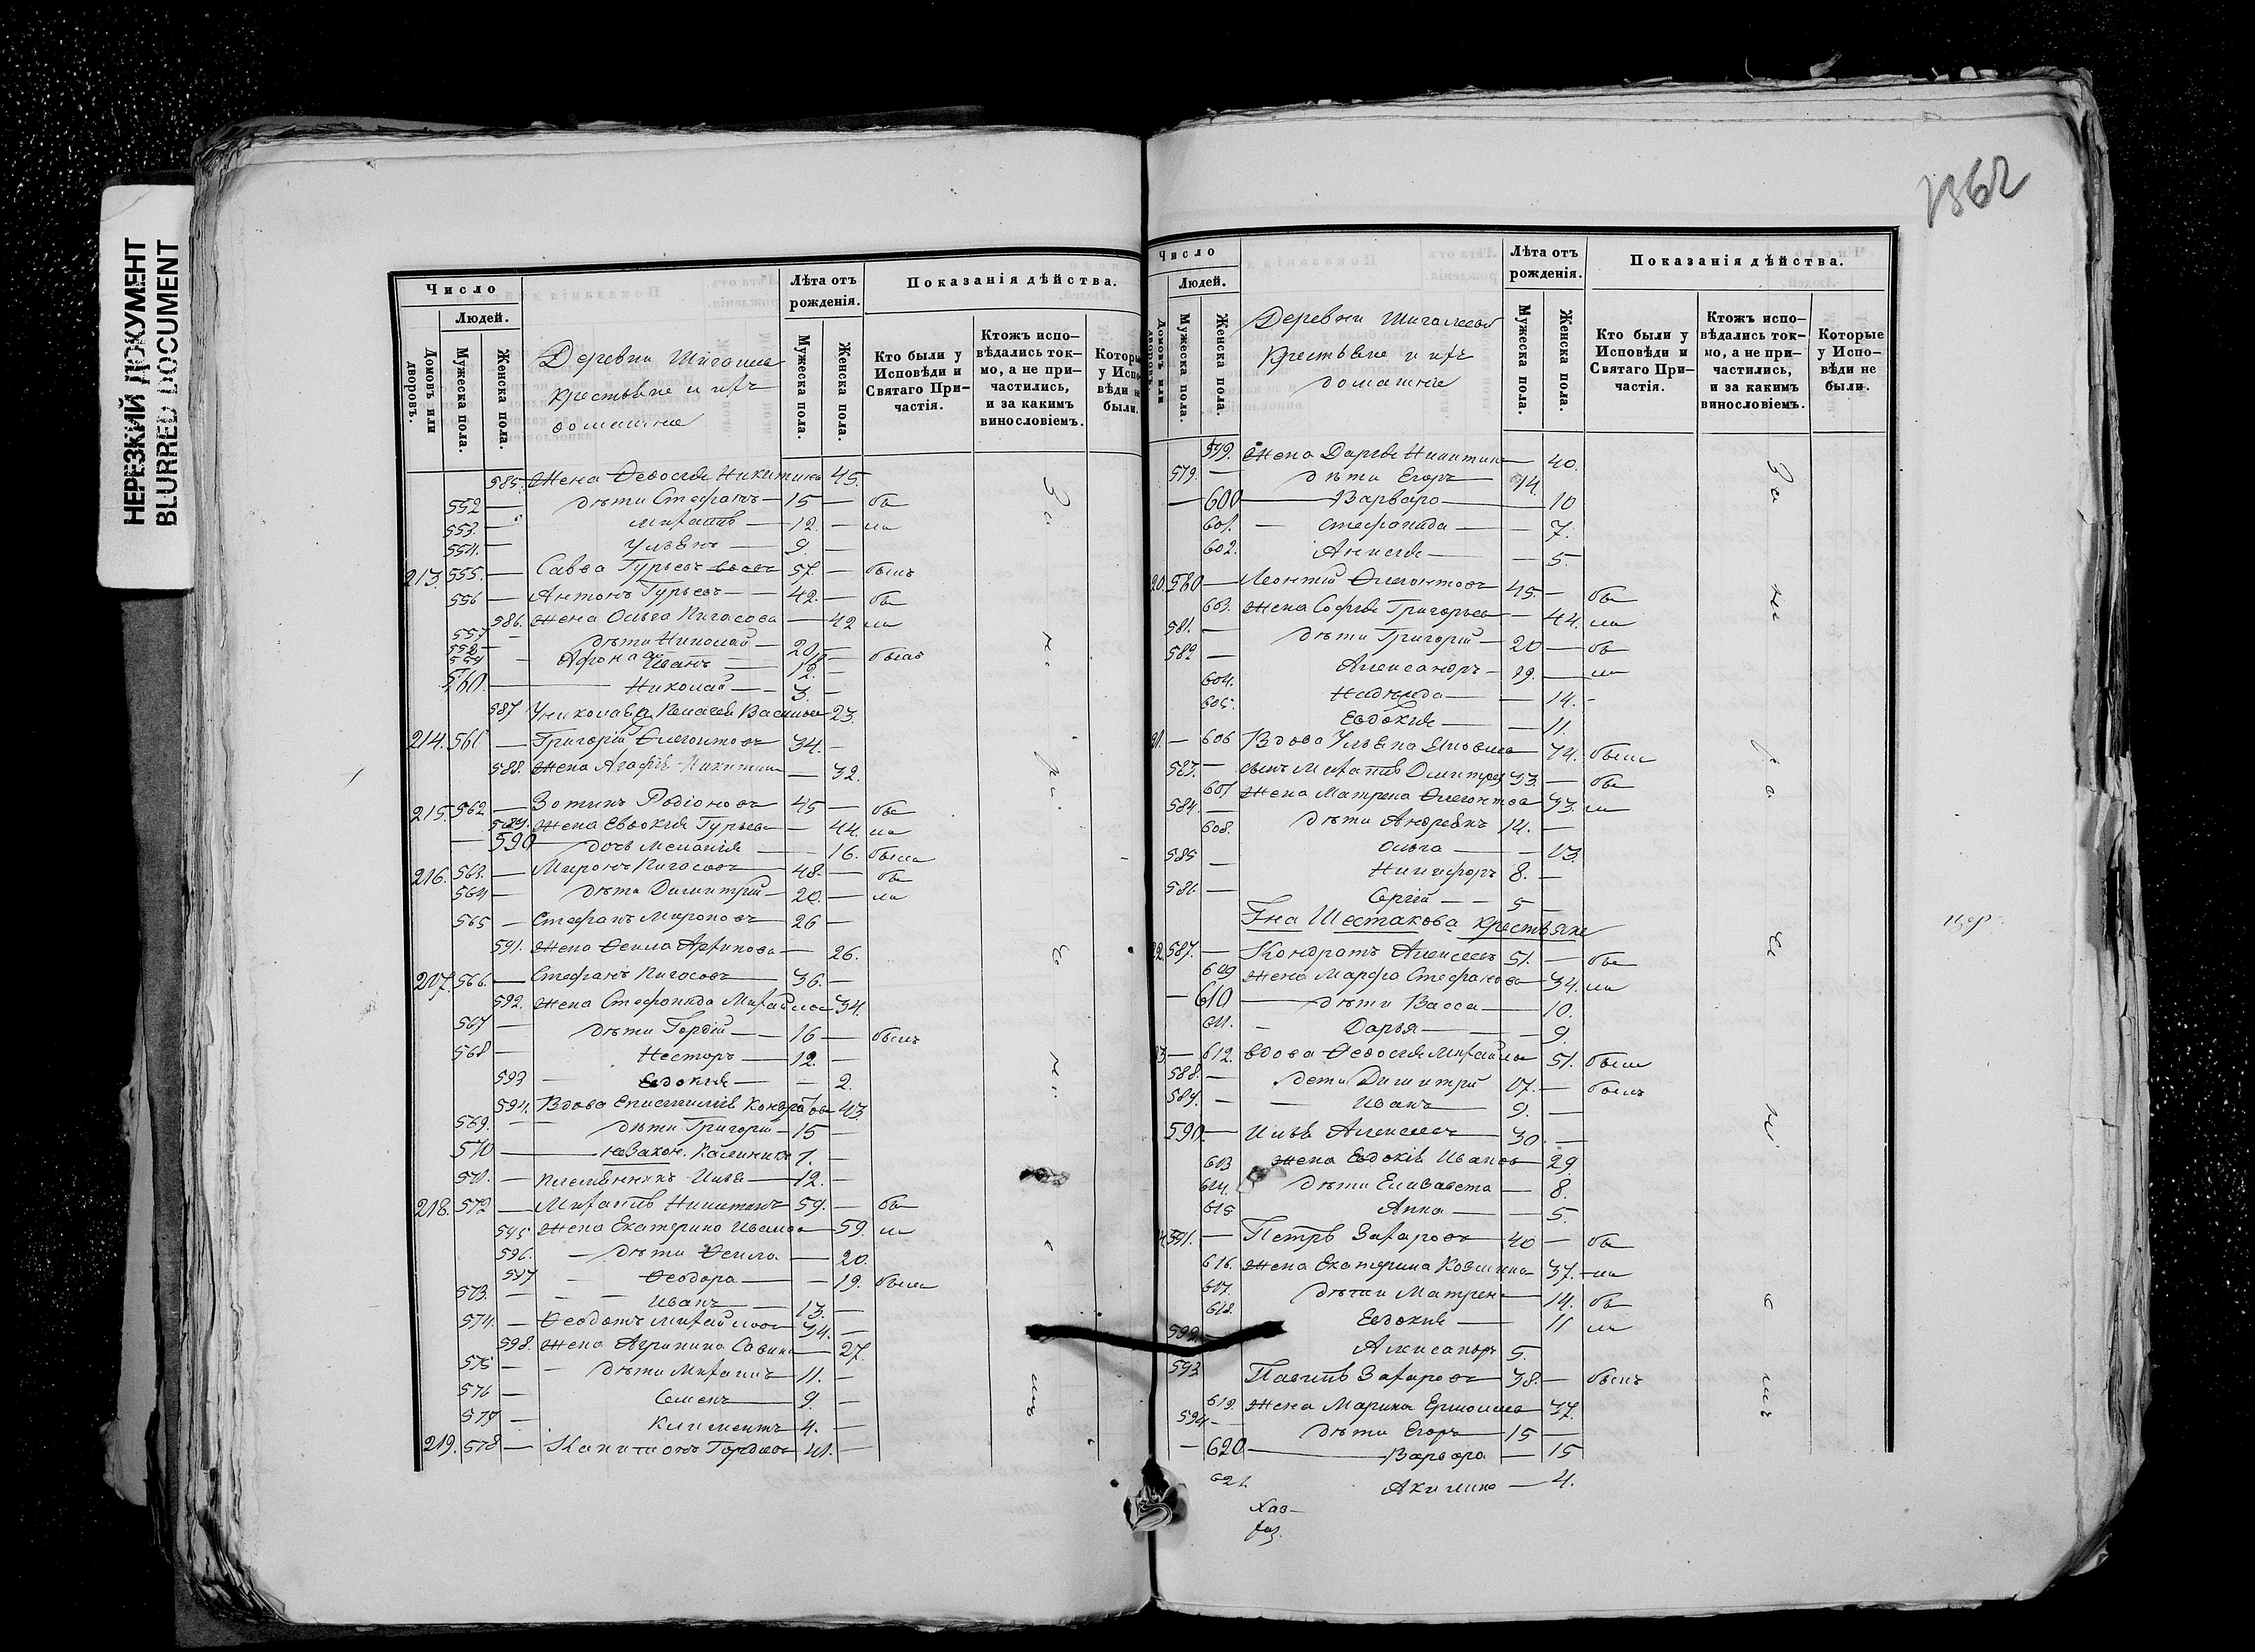 НЕРЕЗКИЙ ДОКУМЕНТ
BLURRED DOCUMENT
Число
Людей.
Домовъ или дворовъ.
Мужеска пола.
Женска пола.
Деревни
крестьяне и ихъ
домашние
Лѣта отъ рожденія.
Мужеска пола.
Женска пола.
Показанія дѣйства.
Кто были у Исповѣди и Святаго Причастія.
Ктожъ исповѣдались токмо, а не причастились, и за какимъ винословіемъ.
Которы
у Испо
вѣди н
были.
585. Жена Ѳеодосия Никитина 45.
552 — дѣти Стефанъ — 15 — бы
553. — Михаилъ — 12. — ли
554. — Ульянъ — 9. —
213. 555. — Савва Гурьевъ 57. — былъ
556 — Антонъ Гурьевъ — 42. — бы
586. Жена Ольга Пигасова — 42 ли
557 — дѣти Николай — 20 —
558 — Афонас
559 — Иванъ — 12. —
560. — Николай — 3. —
587 У Николая Василье 23.
214. 561 — Григорій 34. —
588. Жена Агафія Никитина — 32.
215. 562 — Зотикъ Родіоновъ 45 — бы
589. Жена Евдокия Гурьева — 44. ли
— 590 — дочь Меланія — 16. была
216. 563. — Миронъ Пигасовъ — 48. — бы
564 — дѣти Димитрій — 20. — ли
565 — Стефанъ Мироновъ — 26 —
591. Жена Ѳекла Архипова — 26.
217. 566. — Стефанъ Пигасовъ — 36. —
592. Жена Стефанида Михайлов 34.
567 — дѣти Гордій — 16 — былъ
568 — Несторъ — 12. —
593 — Евдокия — 2.
594. Вдова Епистимія Кондратова 43
569. — дѣти Григорій — 15 —
570 — незакон. Калиникъ 1. —
571. — племянникъ Илья — 12. —
218. 572 — Михаилъ Никитинъ 59. — бы
595 Жена Екатерина Иванова — 59. ли
596. — дѣти Ѳекла — 20.
597 — Ѳеодора — 19. была
573. — Иванъ — 13. —
574. — Ѳеодотъ Михайловъ 34. —
598. Жена Агрипина Савина — 27.
575 — дѣти Михаилъ — 11. —
576 — Семенъ — 9. —
577 — Климентъ — 4. —
219. 578 — Капитонъ Гордеевъ 41. —
1362
Число
Людей.
Домовъ или дворовъ.
Мужеска пола.
Женска пола.
Деревни
крестьяне и ихъ
домашніе
Лѣта отъ рожденія.
Мужеска пола.
Женска пола.
Показанія дѣйства.
Кто были у Исповѣди и Святаго Причастія.
Ктожъ исповѣдались токмо, а не причастились, и за какимъ винословіемъ.
Которые у Исповѣди не были.
599. Жена Дарья Никитина — 40.
579. — дѣти Егоръ — 14.
— 600 — Варвара — 10
601. — Стефанида — 7.
602. Анисия — 5.
20. 580 — Леонтій 45. — бы
603. Жена Софья Григорьева — 44. ли
581. — дѣти Григорій — 20 — бы
582 — Александръ — 19. — ли
604. Надежда — 14. —
605. Евдокия — 11.
21. — 606 Вдова Ульяна 74. была
583. — сынъ Михаилъ Димитрев 33. — бы
607 Жена Матрена 33. ли
584. — дѣти Андреянъ 14. —
608. Ольга — 13.
585 — Никифоръ 8. —
586. — Сергій — 5
Шестакова крестьяне
22. 587. — Кондратъ Алексеевъ 51. — бы
609 Жена Марфа Стефанова — 34. ли
— 610 — дѣти Васса — 10.
611. — Дарья — 9.
23. — 612. вдова Ѳеодосия Михайлова 51. была
588. — дети Димитрій 17. — былъ
589. — Иванъ — 9. —
590. — Илья Алексеевъ 30. —
613 жена Евдокія Иванова 29.
614. дѣти Елизавета — 8.
615 Анна — 5.
591. — Петръ Захаровъ 40 — бы
616. Жена Екатерина Козмина 37. ли
617. дѣти Матрена — 14. бы
618. Евдокия — 11 ли
592. — Александръ 5.
593 Павелъ Захаровъ 38. — былъ
619. Жена Марина Ермолаева 37.
594 — дѣти Егоръ — 15 —
— 620 — Варвара — 15
621 Акилина — 4.